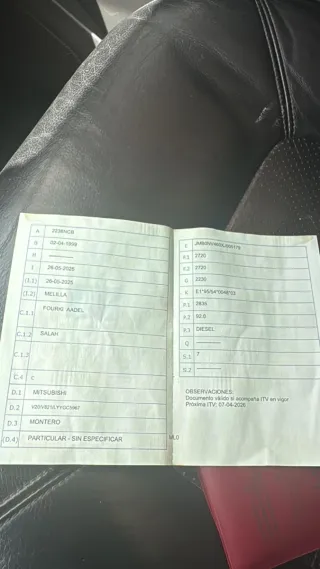 A
B
H
I 26-05-2025
(I.1) 26-05-2025
(I.2) MELILLA
C.1.1 FOURKI AADEL
C.1.2 SALAH
C.1.3
C.4 c
D.1 MITSUBISHI
D.2
D.3 MONTERO
(D.4) PARTICULAR - SIN ESPECIFICAR
E
F.1 2720
F.2 2720
G 2230
K
P.1 2835
P.2
P.3 DIESEL
Q
S.1 7
S.2
OBSERVACIONES:
Documento válido si acompaña ITV en vigor
Próxima ITV: 07-04-2026